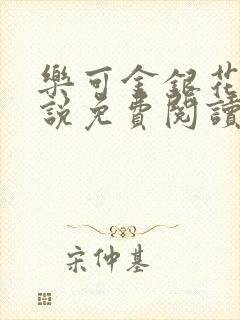 樂可金銀花
說免費閱讀
宋仲基